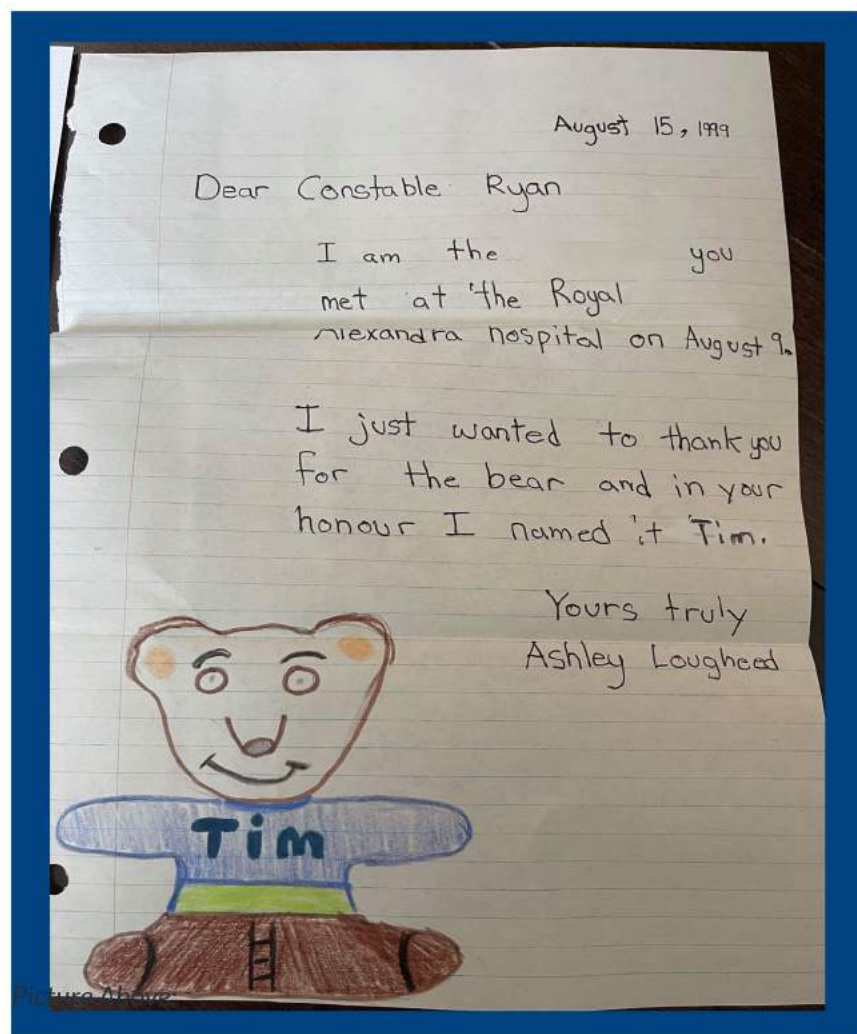 August 15, 1999
Dear Constable Ryan
I am the you
met at the Royal
Alexandra hospital on August 9.
I just wanted to thank you
for the bear and in your
honour I named it Tim.
Yours truly
Ashley Lougheed
Tim
Picture Above: